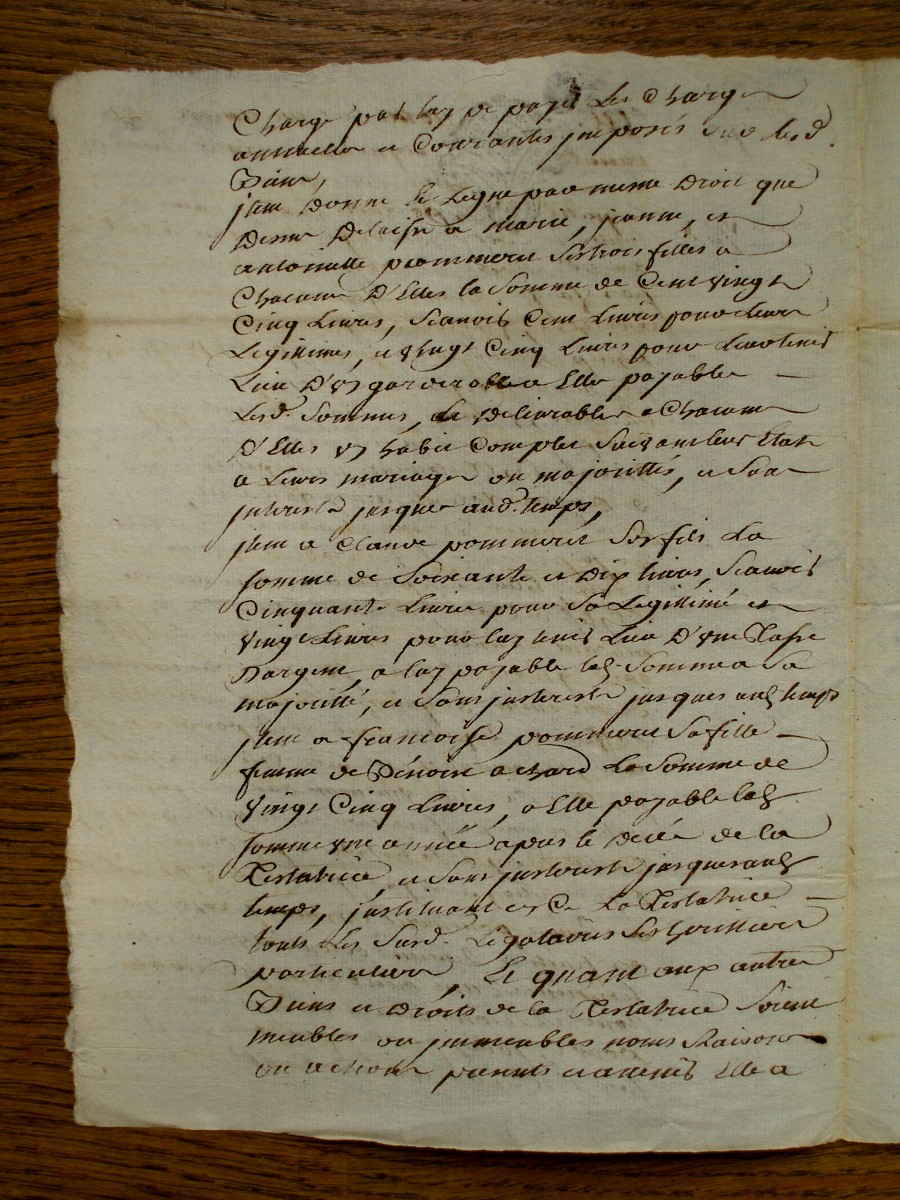 Charge par luy de payer les charges
annuelles et Courantes jmposés sur lesd.
Biens,
jtem Donne et Legue par meme Droit que
Dessus Delaissé a marie, jeanne, et
antoinette pommerut ses trois filles a
Chacune D'Elles la Somme de Cent vingt
Cinq Livres, Scauoir Cent Livres pour leurs
Legittimes, et vingt Cinq Livres pour leur tenir
Lieu D'vn garderobbe a Elles payables
Lesd. Sommes, et Deliurables a Chacune
D'Elles vn habit Complet Suivant leur Etat
a Leurs mariages ou majorittés, et Sans
jnterests jusques aud. temps,
jtem a Claude pommerut Son fils La
somme de Soixante et Dix livres, Scauoir
Cinquante Livres pour Sa Legittime et
vingt Livres pour luy tenir Lieu D'vne Tasse
D'argent, a luy payable lad. Somme a Sa
majoritté, et Sans jnterests jusques aud. temps
jtem a francoise pommerut Sa fille
femme de Benoist achard La Somme de
vingt Cinq Livres, a Elle payable lad.
somme vne année apres le Decés de la
Testatrice, et Sans jnterests jusques aud.
temps, jnstituant en Ce La Testatrice
touts Les Susd. Legataires Ses heritiers
particuliers, Et quant aux autres
Biens et Droits de la Testatrice Soient
meubles ou jmmeubles noms Raisons
ou actions presents et avenirs Elle a